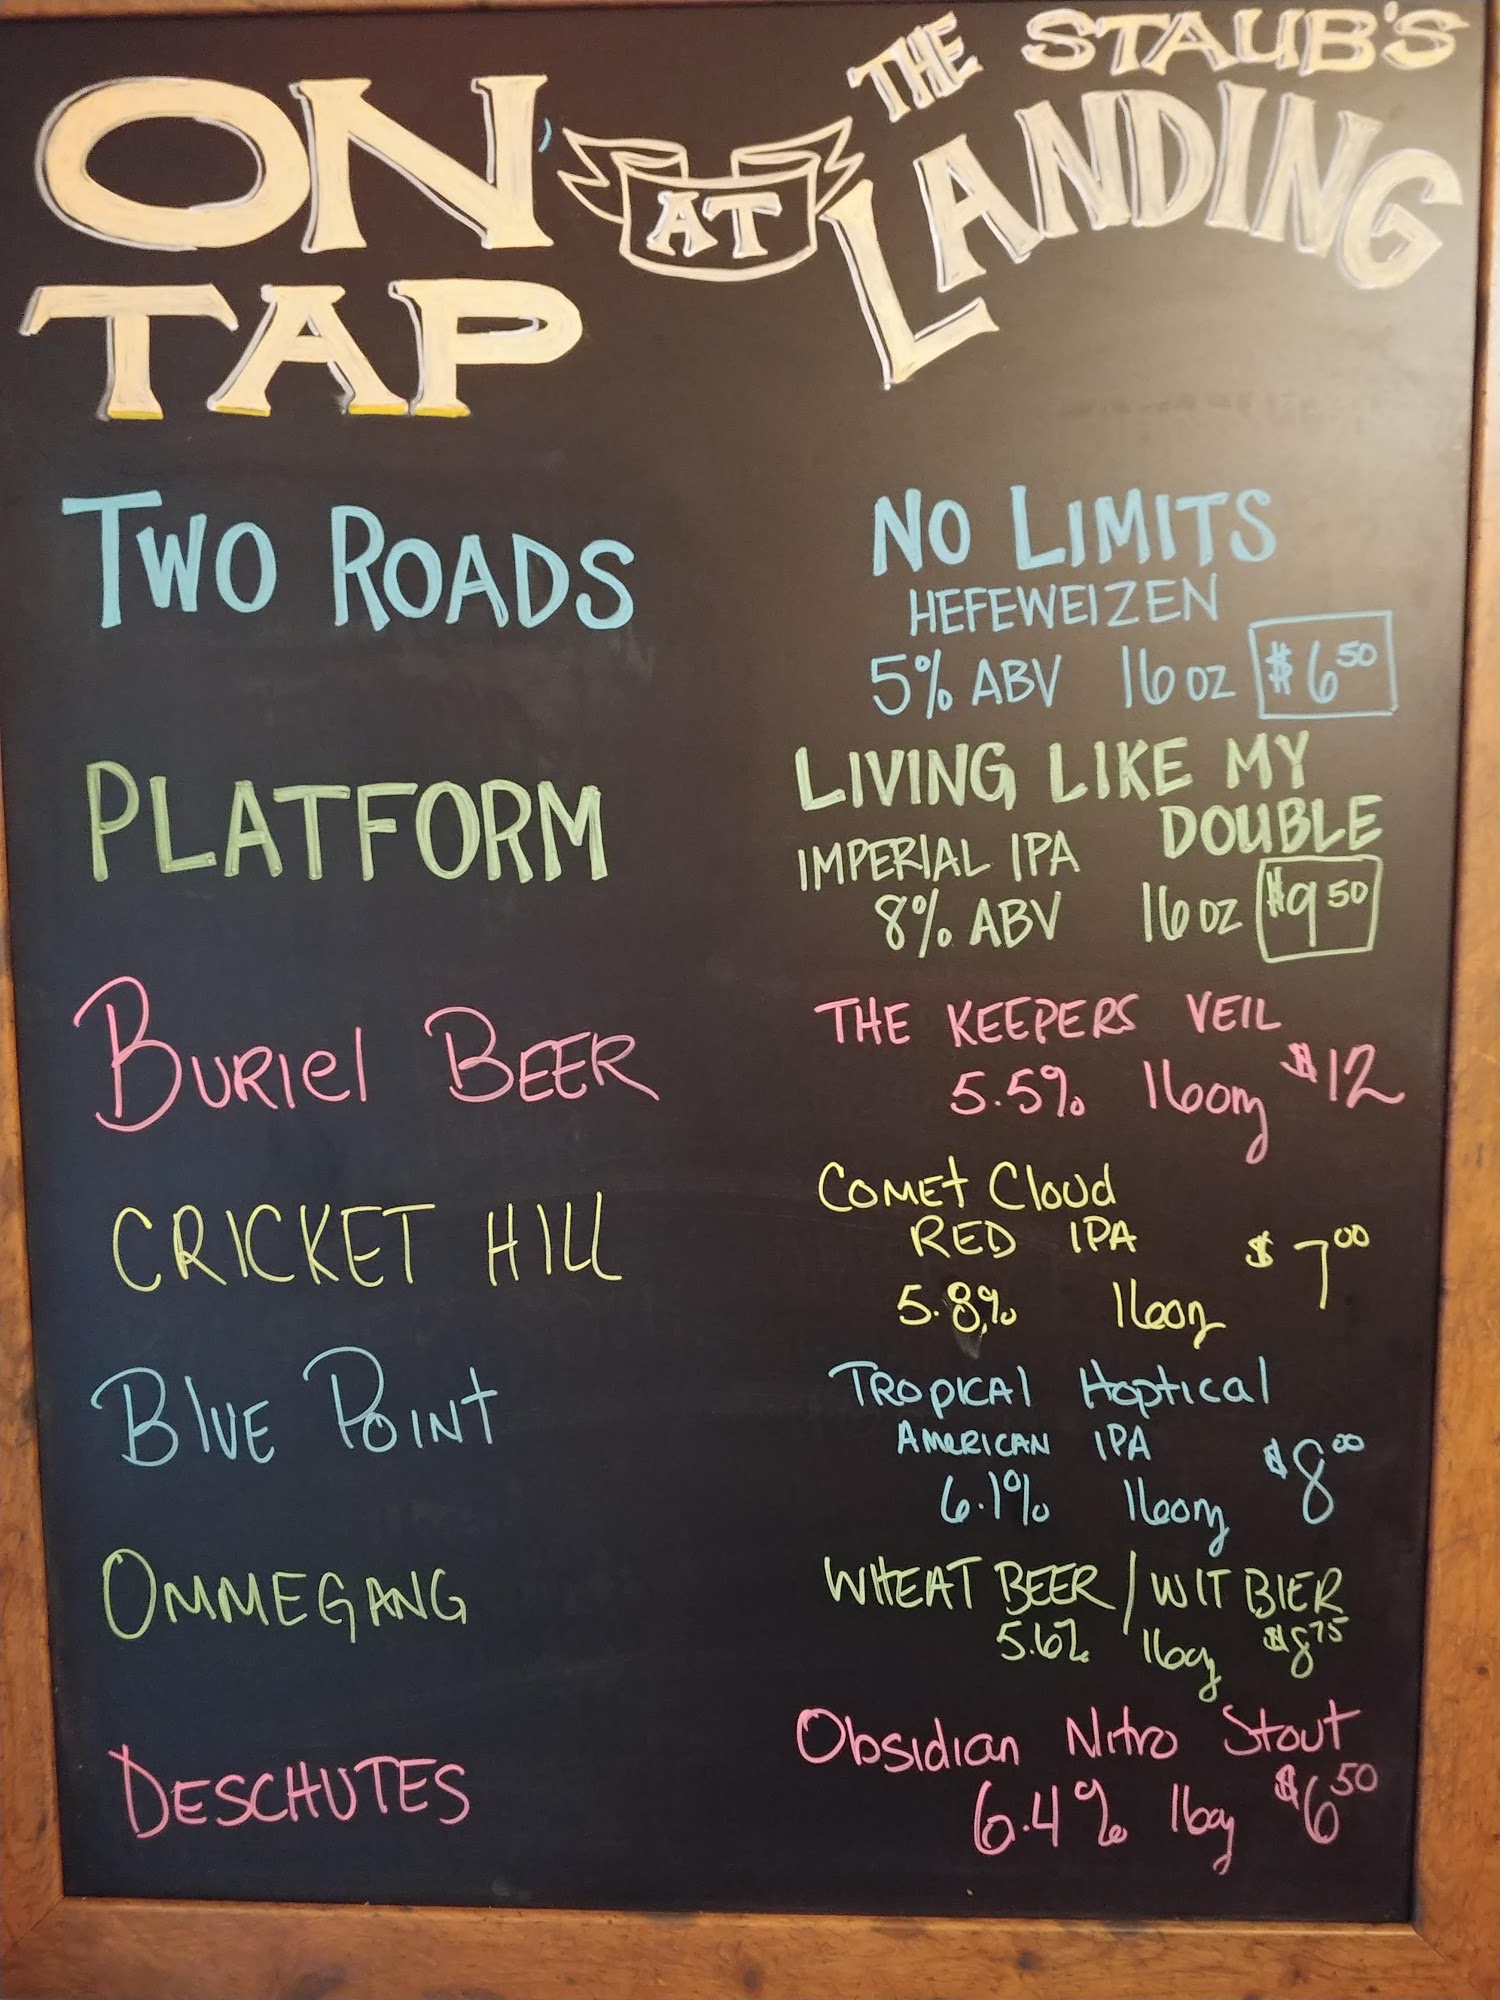 ON TAP
AT
THE STAUB'S
LANDING
TWO ROADS
NO LIMITS
HEFEWEIZEN
5% ABV 16 OZ $6.50
PLATFORM
LIVING LIKE MY
DOUBLE
IMPERIAL IPA
8% ABV 16 OZ $9.50
BURIEL BEER
THE KEEPERS VEIL
5.5% 16oz $12
CRICKET HILL
COMET CLOUD
RED IPA
5.8% 16oz $7.00
BLUE POINT
TROPICAL Hoptical
AMERICAN IPA
6.1% 16oz $8.00
OMMEGANG
WHEAT BEER / WIT BIER
5.6% 16oz $8.75
DESCHUTES
Obsidian Nitro Stout
6.4% 16oz $6.50